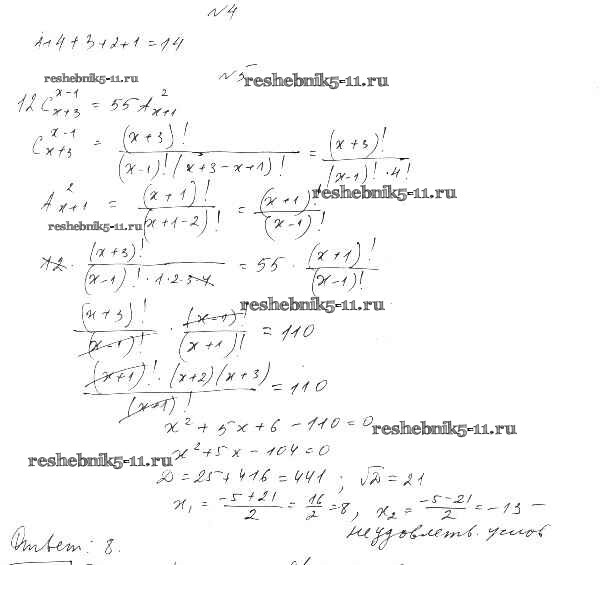 №4
4+4+3+2+1=14
reshebnik5-11.ru
№5
reshebnik5-11.ru
12C_{x+3}^{x-1} = 55A_{x+1}^{2}
C_{x+3}^{x-1} = (x+3)! / (x-1)!(x+3-x+1)! = (x+3)! / (x-1)!·4!
reshebnik5-11.ru
A_{x+1}^{2} = (x+1)! / (x+1-2)! = (x+1)! / (x-1)!
reshebnik5-11.ru
12 · (x+3)! / (x-1)!·1·2·3·4 = 55 · (x+1)! / (x-1)!
reshebnik5-11.ru
(x+3)! / (x-1)! · (x-1)! / (x+1)! = 110
(x+1)!·(x+2)(x+3) / (x+1)! = 110
x²+5x+6-110=0
reshebnik5-11.ru
x²+5x-104=0
reshebnik5-11.ru
D=25+416=441; √D=21
x₁ = (-5+21)/2 = 16/2 = 8, x₂ = (-5-21)/2 = -13 -
неудовлетв. услов
Ответ: 8.